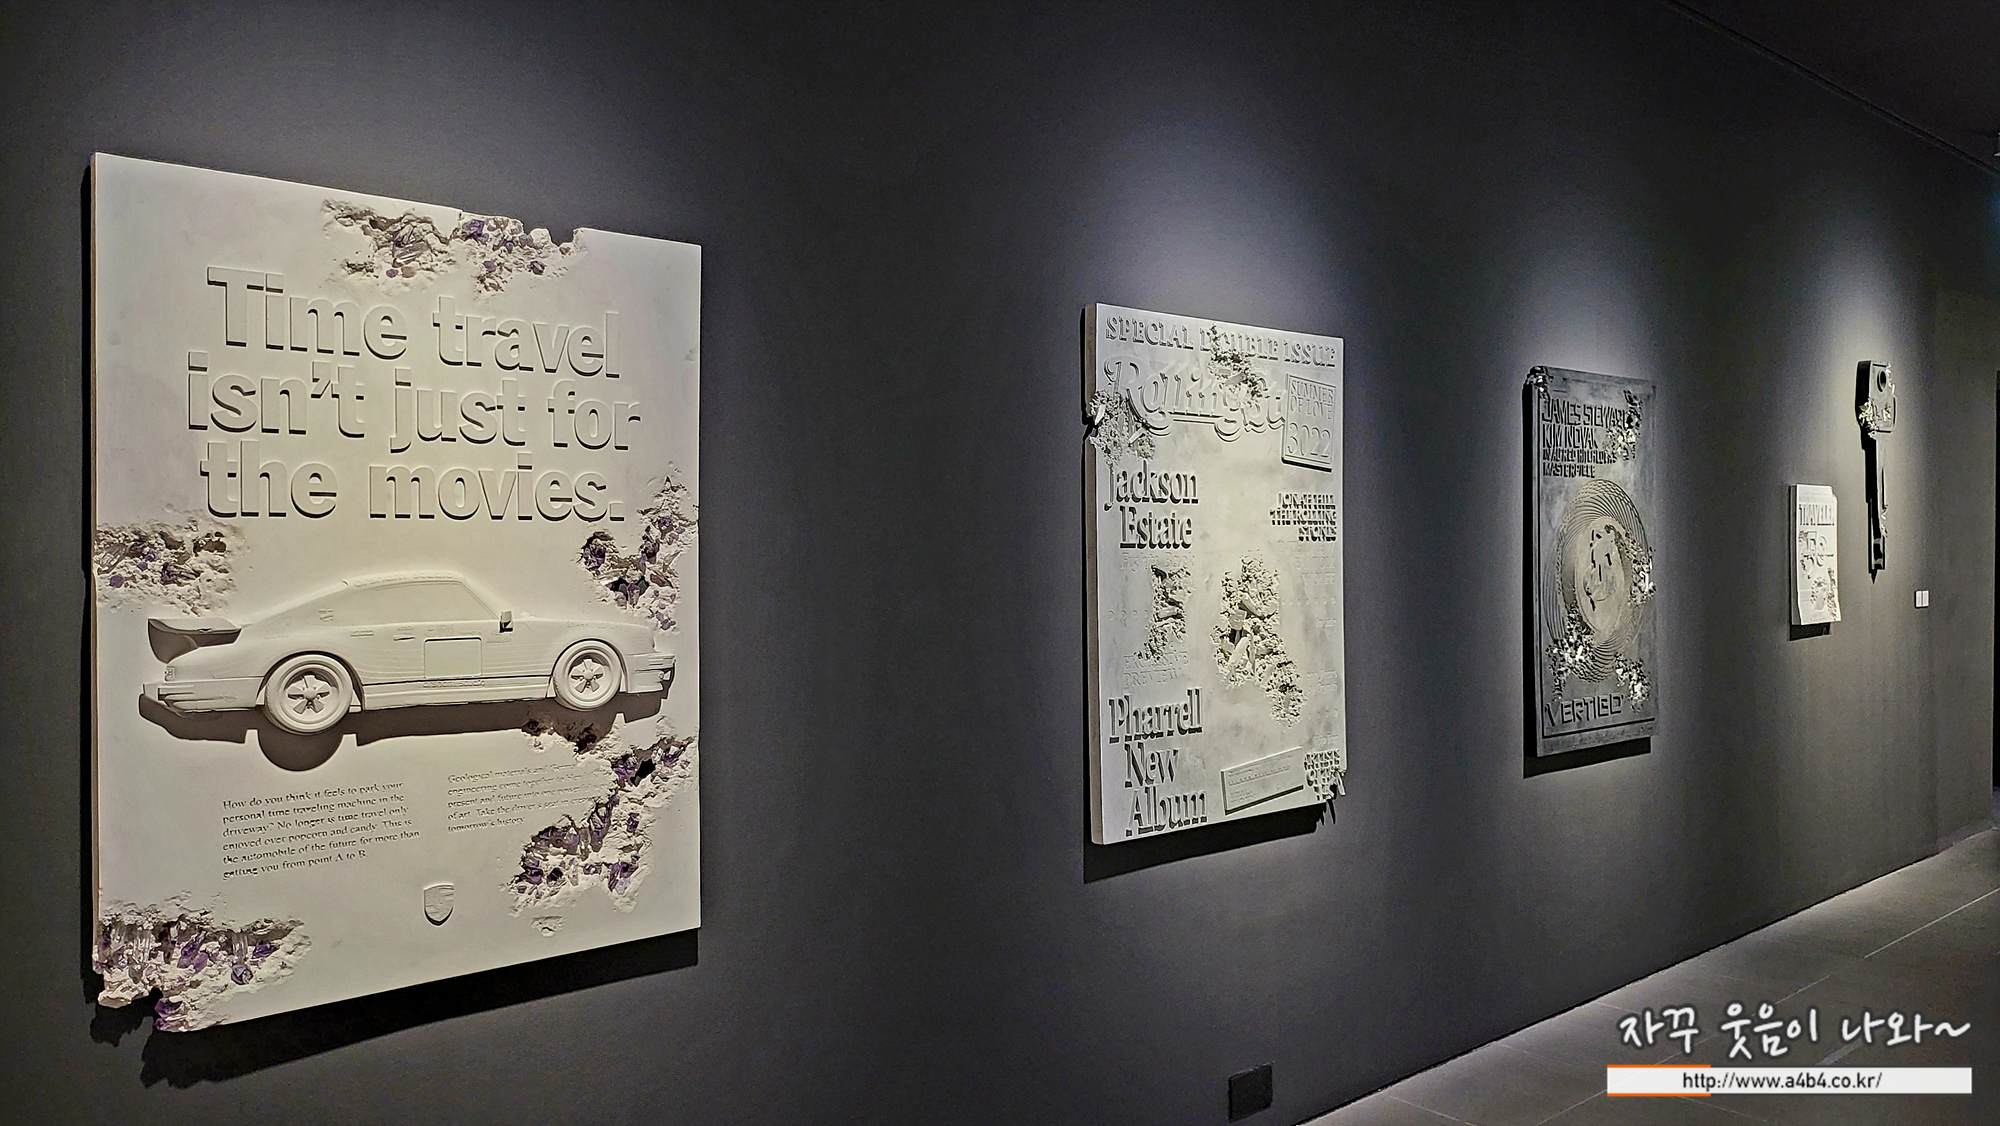 Time travel
isn't just for
the movies.
How do you think it feels to park your
personal time traveling machine in the
driveway? No longer is time travel only
enjoyed over popcorn and candy. This is
the automobile of the future for more than
getting you from point A to B.
Geological materials and
engineering come together
present and future into one
of art. Take the driver's seat
tomorrow's history.
SPECIAL DOUBLE ISSUE
Rolling St
SUMMER
OF LOVE
3022
Jackson
Estate
JONAH HILL
THE ROLLING
STONES
EXCLUSIVE
PREVIEW
Pharrell
New
Album
ARTISTS
JAMES STEWART
KIM NOVAK
IN ALFRED HITCHCOCK'S
MASTERPIECE
VERTIGO
TRAVELER
자꾸 웃음이 나와~
http://www.a4b4.co.kr/